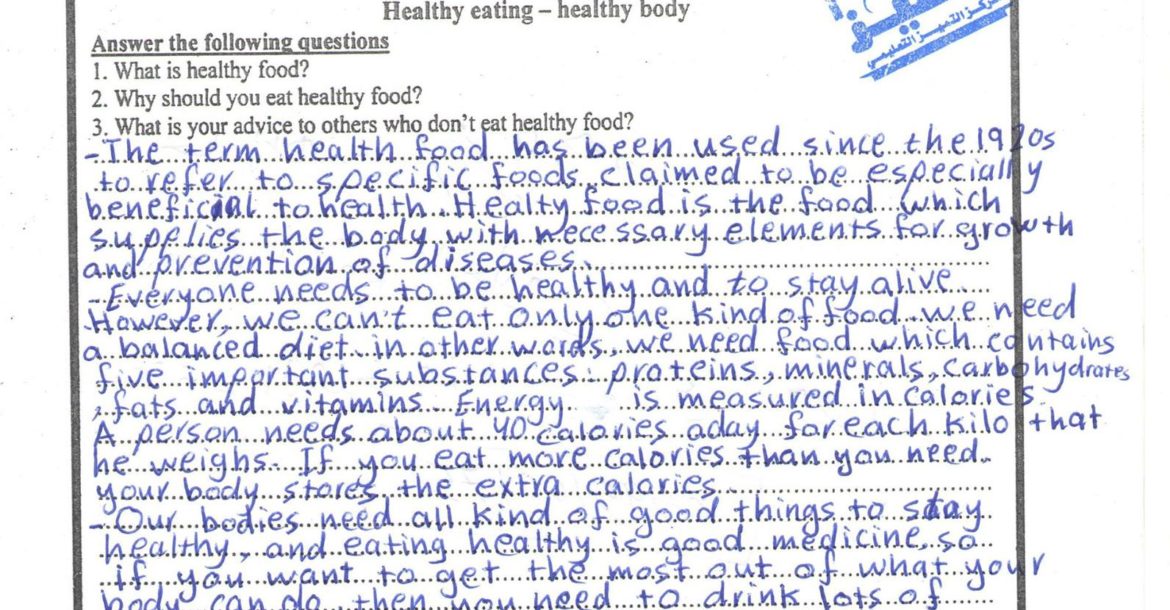 Healthy eating – healthy body
مركز التميز التعليمي
Answer the following questions
1. What is healthy food?
2. Why should you eat healthy food?
3. What is your advice to others who don't eat healthy food?
- The term health food has been used since the 1920s
to refer to specific foods, claimed to be especially
beneficial to health. Healty food is the food which
supplies the body with necessary elements for growth
and prevention of diseases.
- Everyone needs to be healthy and to stay alive.
However, we can't eat only one kind of food. we need
a balanced diet. in other words, we need food which contains
five important substances: proteins, minerals, carbohydrates
, fats and vitamins. Energy is measured in calories.
A person needs about 40 calories aday for each kilo that
he weighs. If you eat more calories than you need.
your body stores the extra calories
- Our bodies need all kind of good things to stay
healthy, and eating healthy is good medicine, so
if you want to get the most out of what your
body can do, then you need to drink lots of